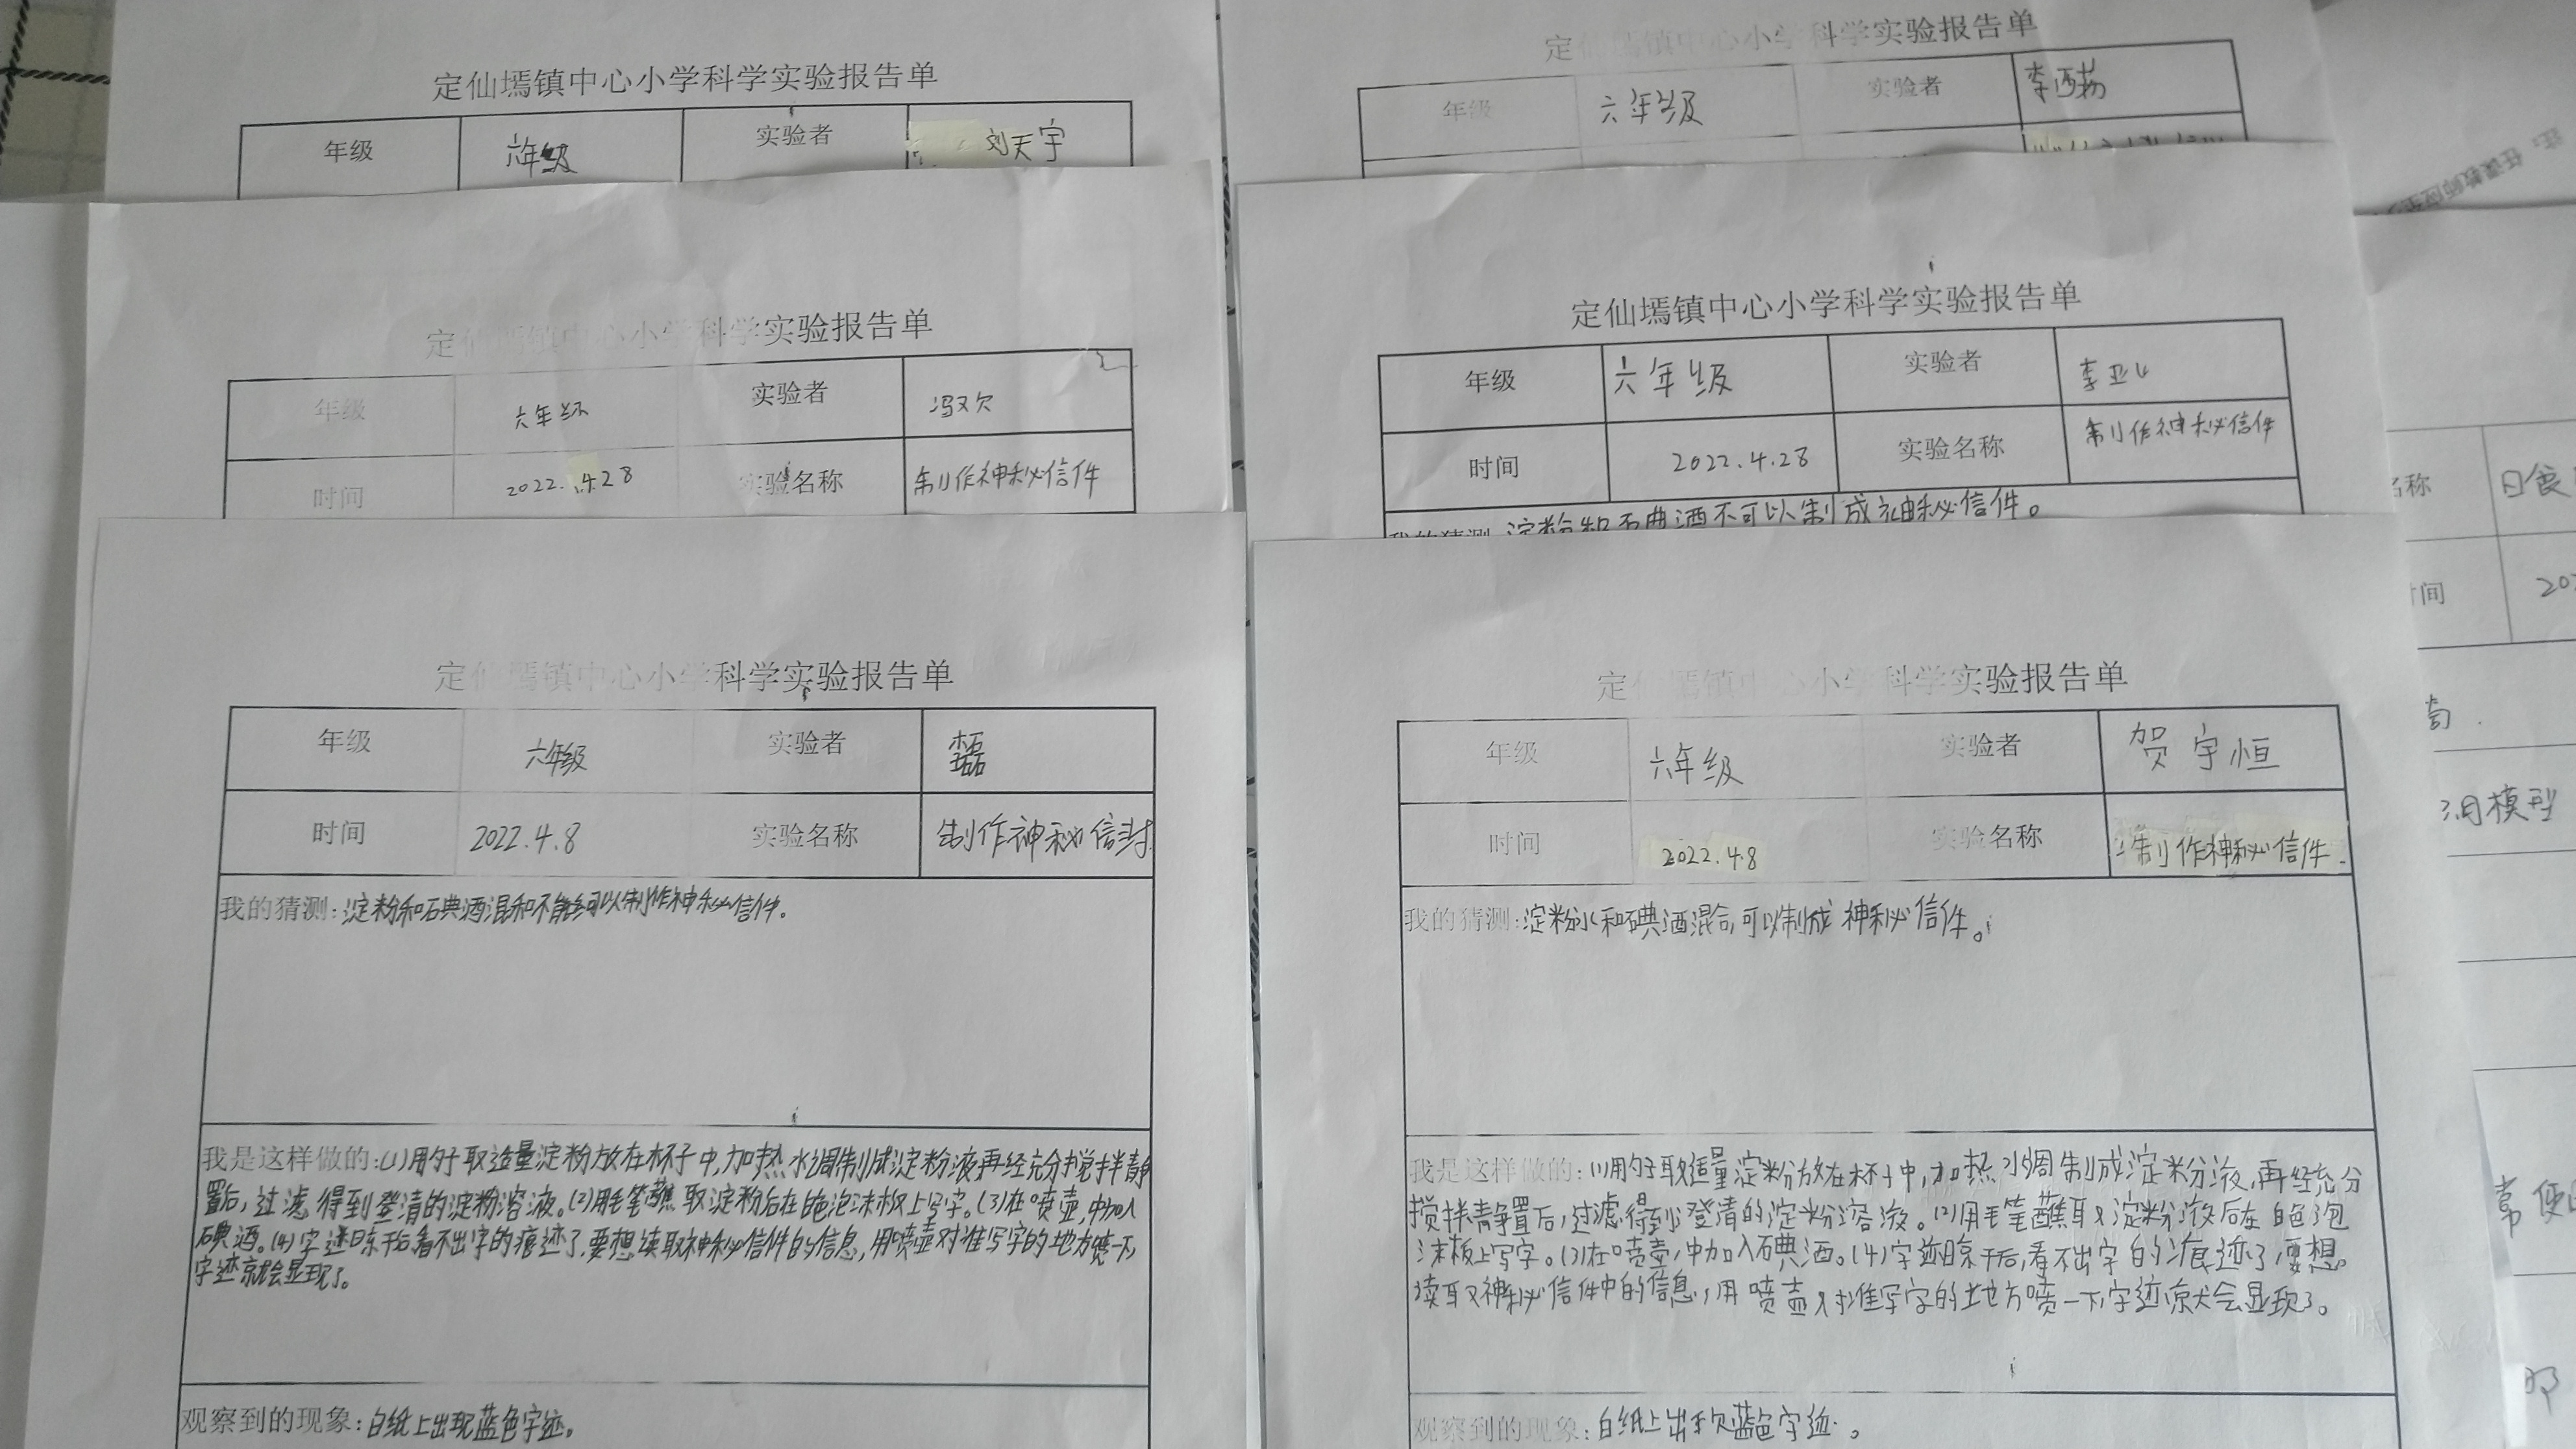 定仙墕镇中心小学科学实验报告单
年级 六年级 实验者 刘天宇
定仙墕镇中心小学科学实验报告单
年级 六年级 实验者
定仙墕镇中心小学科学实验报告单
年级 六年级 实验者
时间 2022.4.28 实验名称 制作神秘信件
定仙墕镇中心小学科学实验报告单
年级 六年级 实验者
时间 2022.4.28 实验名称 制作神秘信件
我的猜测:淀粉和石典酒不可以制成神秘信件。
定仙墕镇中心小学科学实验报告单
年级 六年级 实验者 李磊
时间 2022.4.8 实验名称 制作神秘信封
我的猜测:淀粉和石典酒混和不能可以制作神秘信件。
我是这样做的:(1)用勺子取适量淀粉放在杯子中,加热水调制成淀粉液再经充分搅拌静
置后,过滤,得到登清的淀粉溶液。(2)用毛笔蘸取淀粉后在白色泡沫板上写字。(3)在喷壶,中加入
碘酒。(4)字迹晾干后看不出字的痕迹了,要想读取神秘信件的信息,用喷壶对准写字的地方喷一下,
字迹就会显现了。
观察到的现象:白纸上出现蓝色字迹。
定仙墕镇中心小学科学实验报告单
年级 六年级 实验者 贺宇恒
时间 2022.4.8 实验名称 制作神秘信件
我的猜测:淀粉水和碘酒混合,可以制成神秘信件。
我是这样做的:(1)用勺子取适量淀粉放在杯子中,加热水调制成淀粉液,再经充分
搅拌静置后,过滤,得到澄清的淀粉溶液。(2)用毛笔蘸取淀粉液后在白色泡
沫板上写字。(3)在喷壶,中加入碘酒。(4)字迹晾干后,看不出字的痕迹了,要想
读取神秘信件中的信息,用喷壶对准写字的地方喷一下,字迹就会显现了。
观察到的现象:白纸上出现蓝色字迹。
名称 日食
时间 202
模型
常使